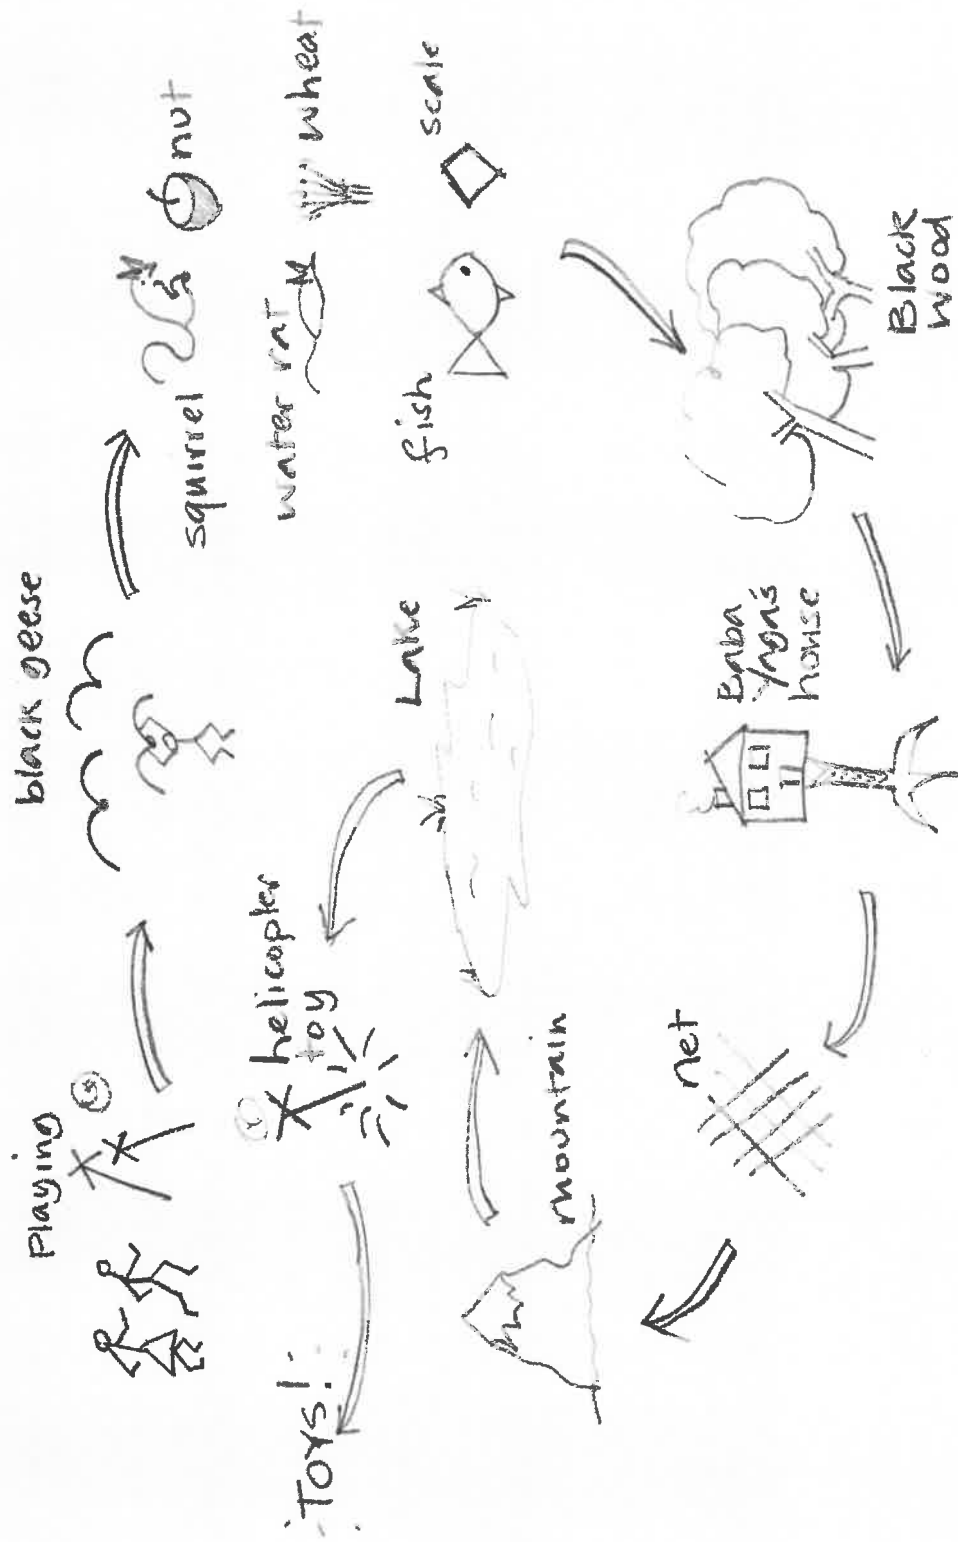 Playing
black geese
squirrel
nut
water rat
wheat
fish
scale
Black
wood
Baba
Yaga's
house
net
mountain
Lake
helicopter
toy
Toys!